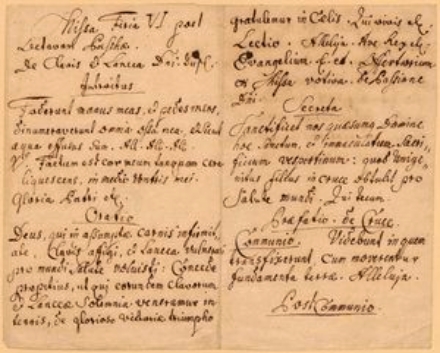 Missa Feria VI post
Octavam Paschæ.
De Clavis & Lancea Dni. dupl.
Introitus
Foderunt manus meas, et pedes meos,
dinumeraverunt omnia ossa mea,
aqua effusus sum. All. All. All.
Factum est cor meum tanquam cera
liquescens, in medio ventris mei.
Gloria Patri etc.
Oratio
Deus, qui in assumptæ carnis infirmit
ate, Clavis affigi, et Lancea vulnerari
pro mundi salute voluisti: Concede
propitius, ut qui eorundem Clavorum
& Lanceæ Solemnia veneramur in
terris, de glorioso victoriæ triumpho
gratulemur in Cælis. Qui vivis etc.
Lectio. Alleluja. Ave Rex etc.
Evangelium et Offertorium
ex Missa votiva de Passione
Dni.
Secreta
Sanctificet nos quæsumus Domine
hoc Sanctum, et immaculatum Sacri-
ficium vespertinum: quod Unige-
nitus filius in cruce obtulit pro
salute mundi. Qui tecum.
Præfatio de Cruce
Communio. Videbunt in quem
transfixerunt, Cum moverentur
fundamenta terræ. Alleluja.
Post Communio.